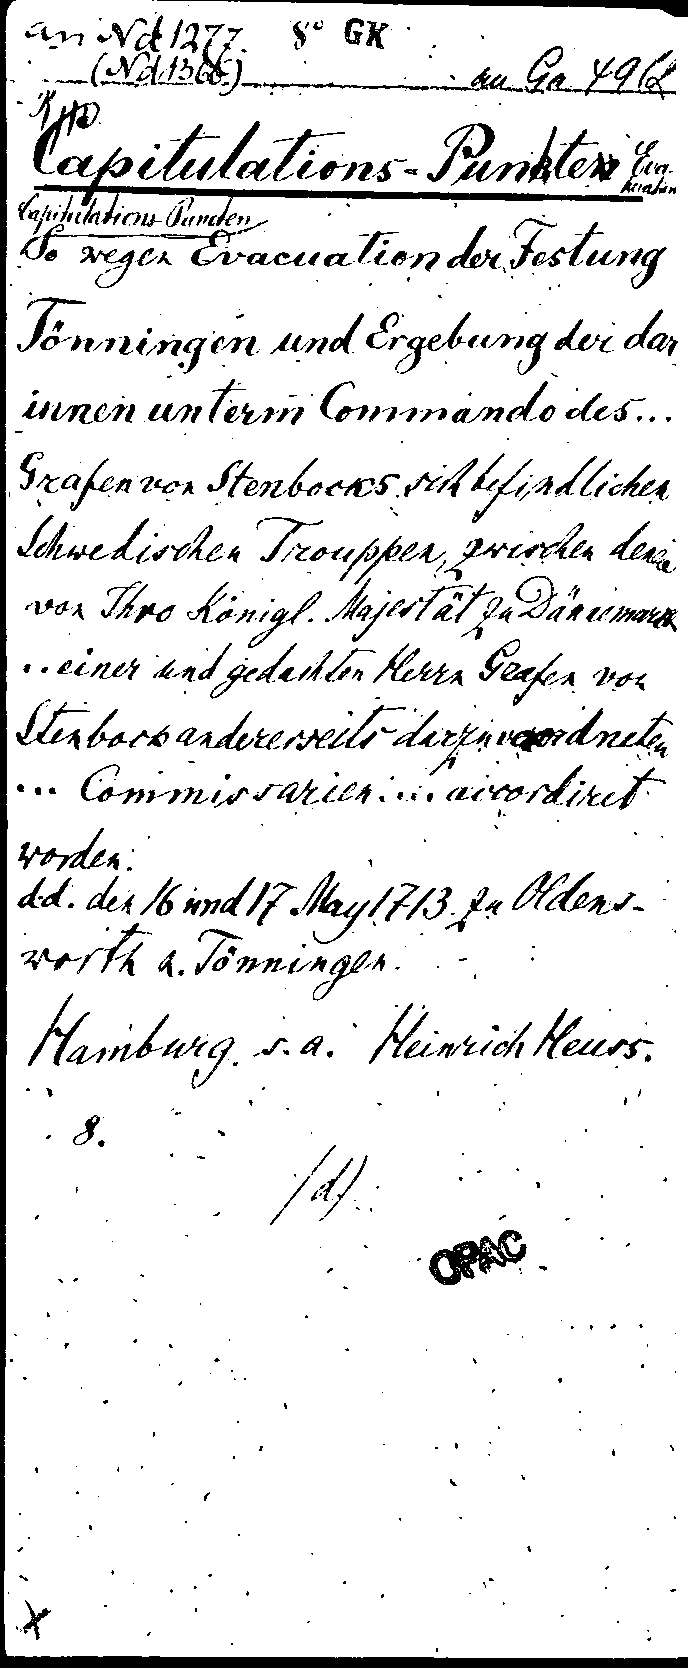 an Nd 1277. 8° GK
(Nd 1366.) an Ga 4962
Capitulations-Punkten Eva-
kuation
Capitulations-Puncten
So wegen Evacuation der Festung
Tönningen und Ergebung der dar
innen unterm Commando des...
Grafen von Stenbocks sich befindlichen
Schwedischen Trouppen, zwischen denen
von Ihro Königl. Majestät zu Dännemark
...einer und gedachten Herrn Grafen von
Stenbocks andererseits darzu verordneten
... Commissarien.... accordiret
worden.
d.d. den 16 und 17 May 1713. zu Oldens-
worth u. Tönningen.
Hamburg. s. a. Heinrich Heuss.
8.
(d)
OPAC
x